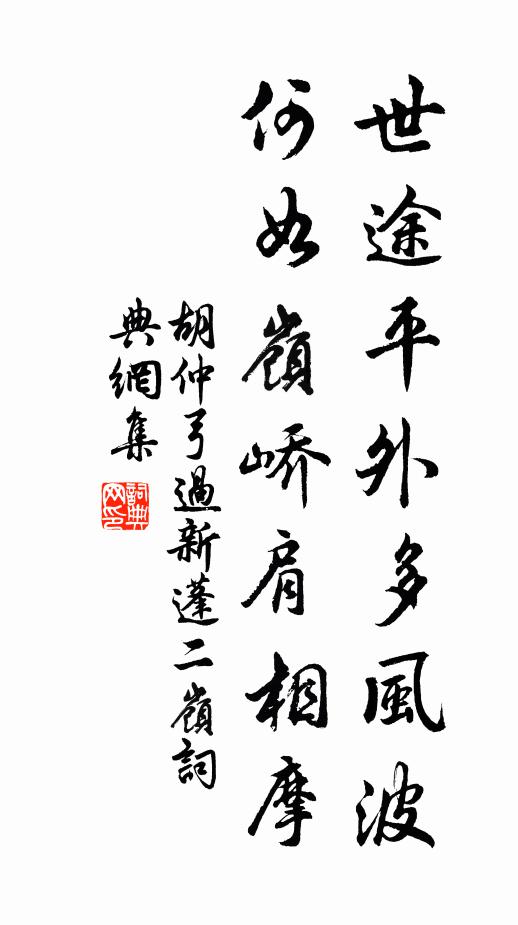 世途平外多風波
何如嶺嶠肩相摩
胡仲弓過新蓬二嶺詞
典網集
詞典
网印